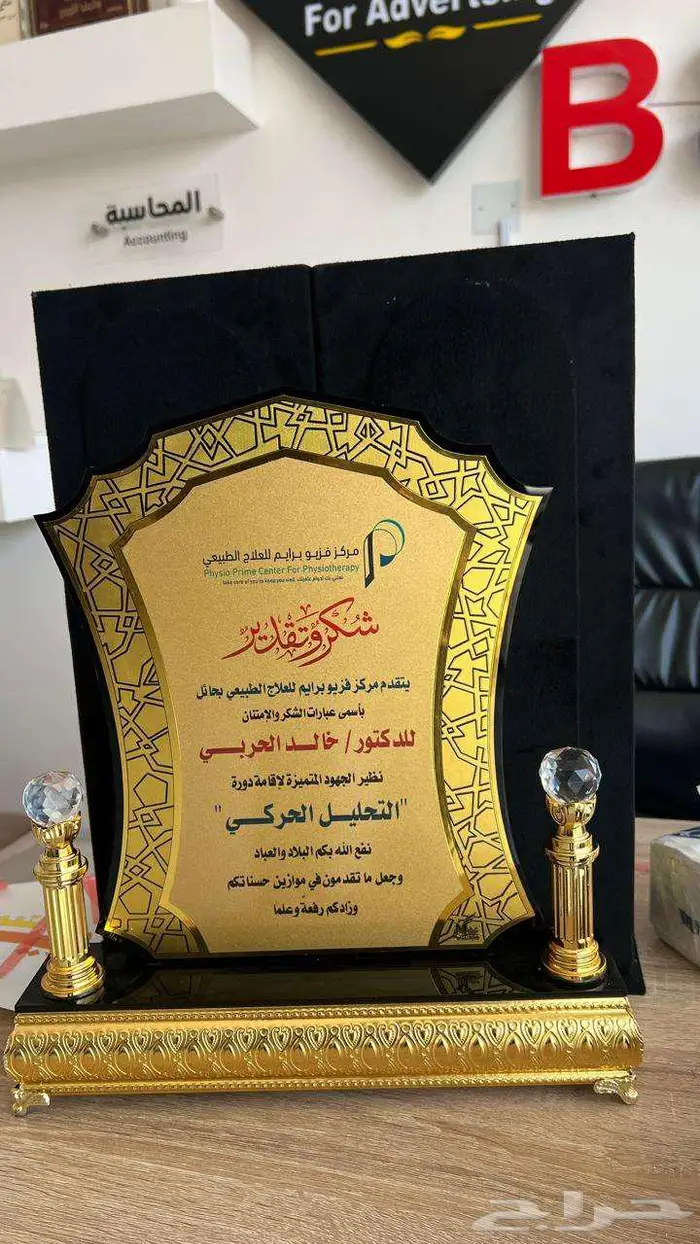 For Advertising
B
المحاسبة
Accounting
مركز فزيو برايم للعلاج الطبيعي
Physio Prime Center For Physiotherapy
take care of you to keep you well
شكر وتقدير
يتقدم مركز فزيو برايم للعلاج الطبيعي بحائل
بأسمى عبارات الشكر والإمتنان
للدكتور / خالد الحربي
نظير الجهود المتميزة لإقامة دورة
"التحليل الحركي"
نفع الله بكم البلاد والعباد
وجعل ما تقدمون في موازين حسناتكم
وزادكم رفعةً وعلما
حراج